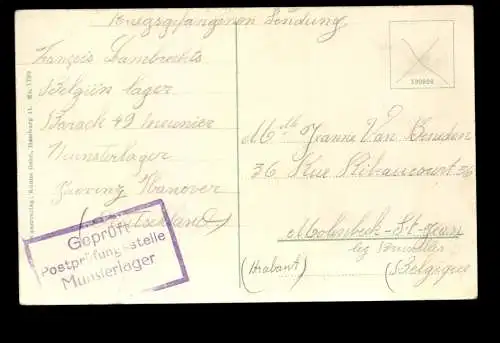 Kriegsgefangenen Sendung
François Lambrechts
Belgiën lager
Barack 49 meunier
Munsterlager
Hanover
(Deutschland)
Geprüft
Postprüfungsstelle
Munsterlager
Mlle Jeanne Van Beneden
36 Rue Ribaucourt 36
Molenbeek-St-Jean
lez Bruxelles
(Brabant) (Belgique)